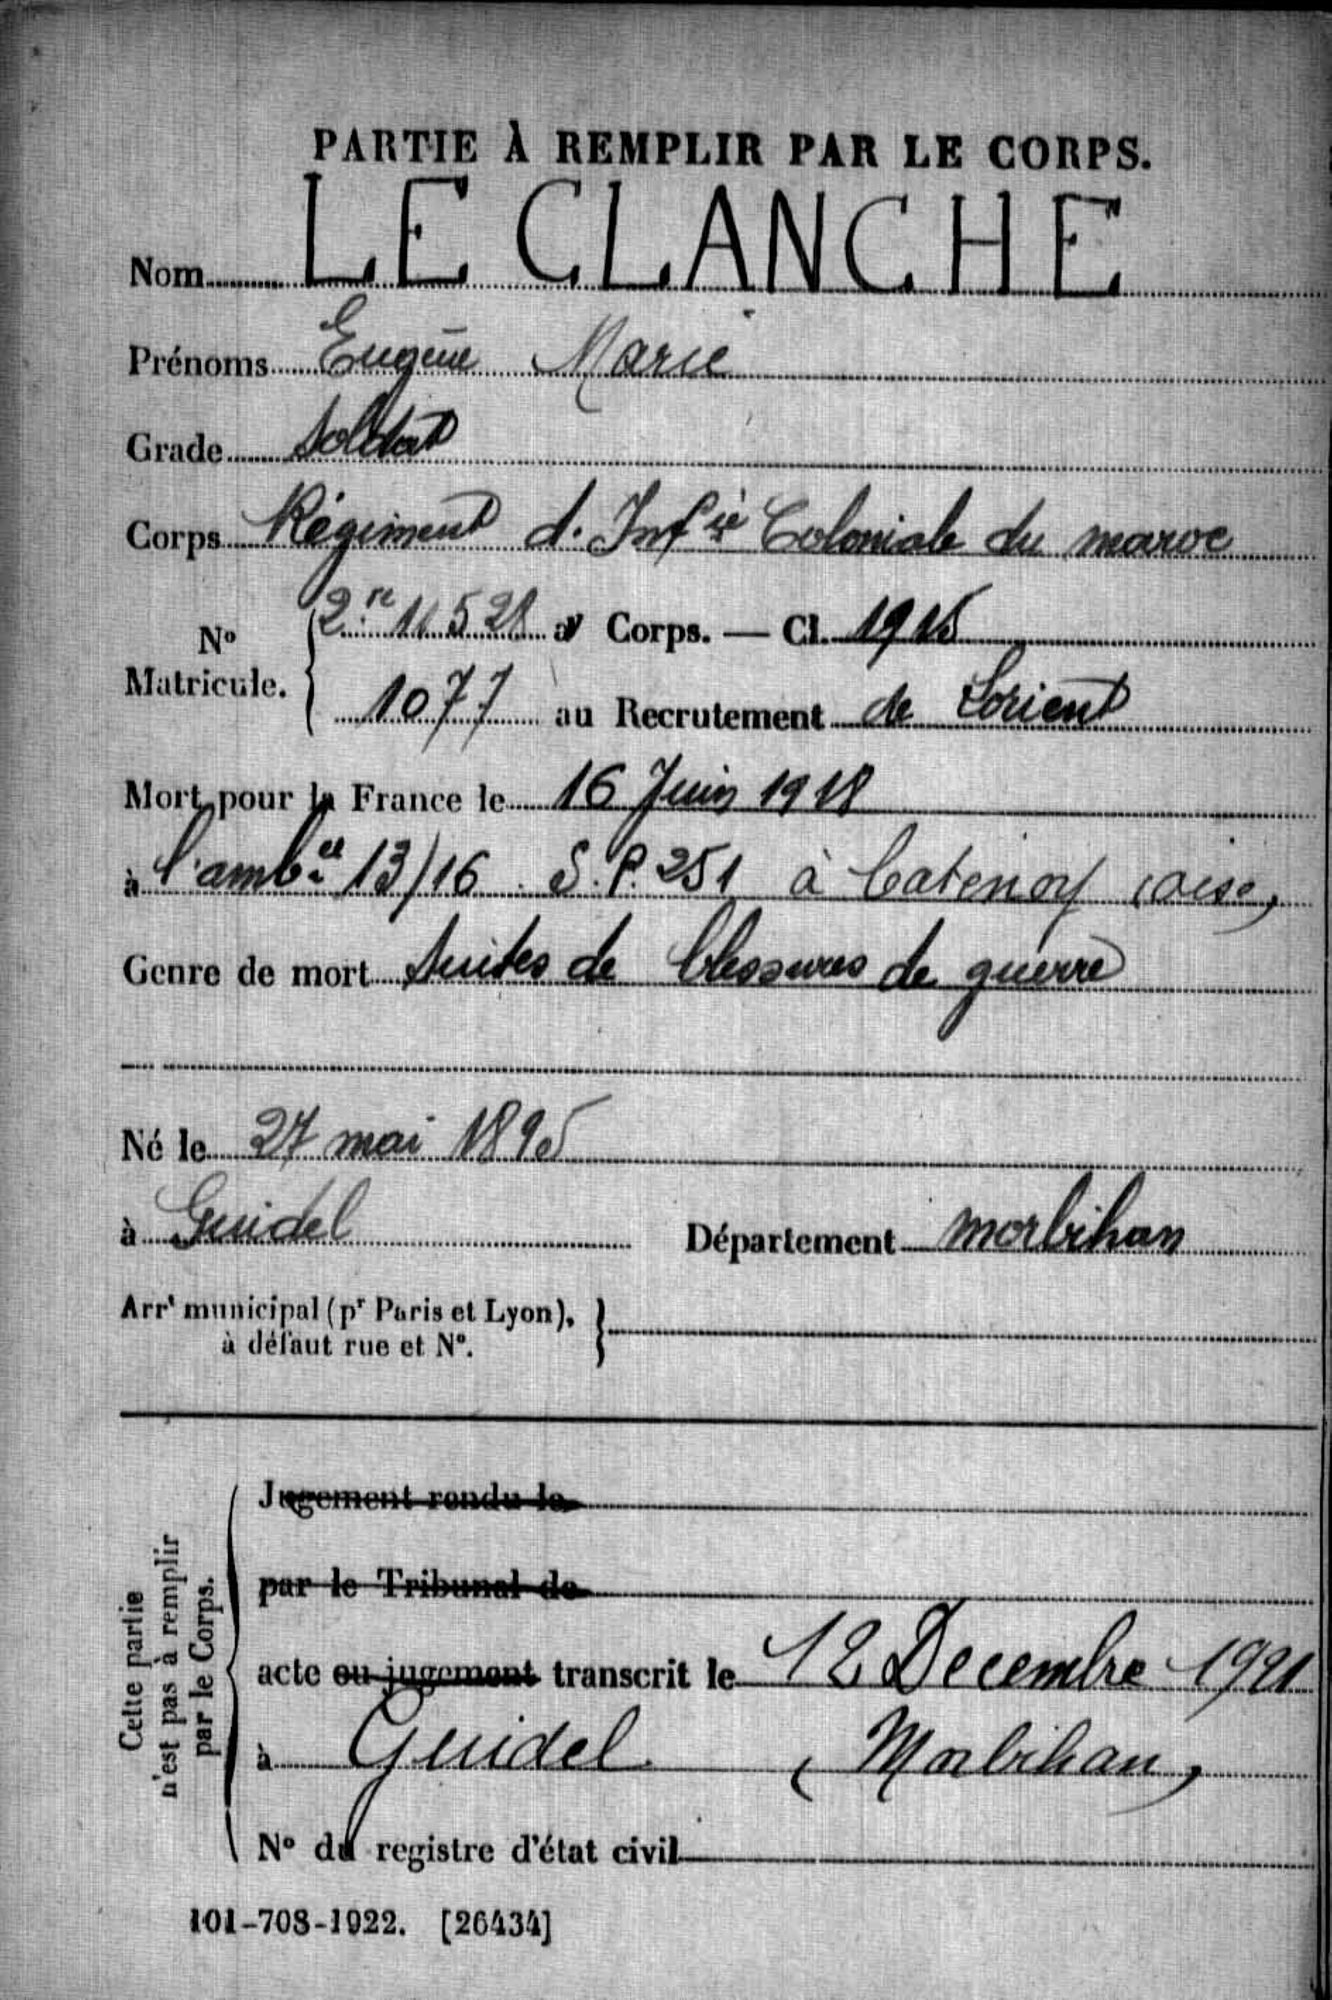 PARTIE À REMPLIR PAR LE CORPS.
Nom LE CLANCHE
Prénoms Eugène Marie
Grade Soldat
Corps Régiment d. Infie Coloniale du maroc
No Matricule. { 2.re 11528 au Corps. — Cl. 1915
1077 au Recrutement de Lorient
Mort pour la France le 16 Juin 1918
à l'ambce 13/16 S.P. 251 à Catenoy (oise)
Genre de mort Suites de blessures de guerre
Né le 27 mai 1895
à Guidel Département morbihan
Arrt municipal (pr Paris et Lyon), }
à défaut rue et No.
Cette partie
n'est pas à remplir
par le Corps.
Jugement rendu le
par le Tribunal de
acte ou jugement transcrit le 12 Decembre 1921
à Guidel (Morbihan)
No du registre d'état civil
101-708-1922. [26434]